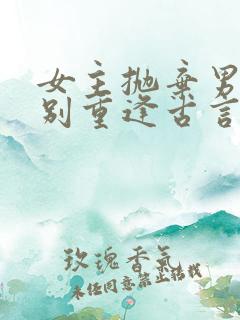 女主抛弃男
别重逢古言
玫瑰香氣
未经同意禁止转载